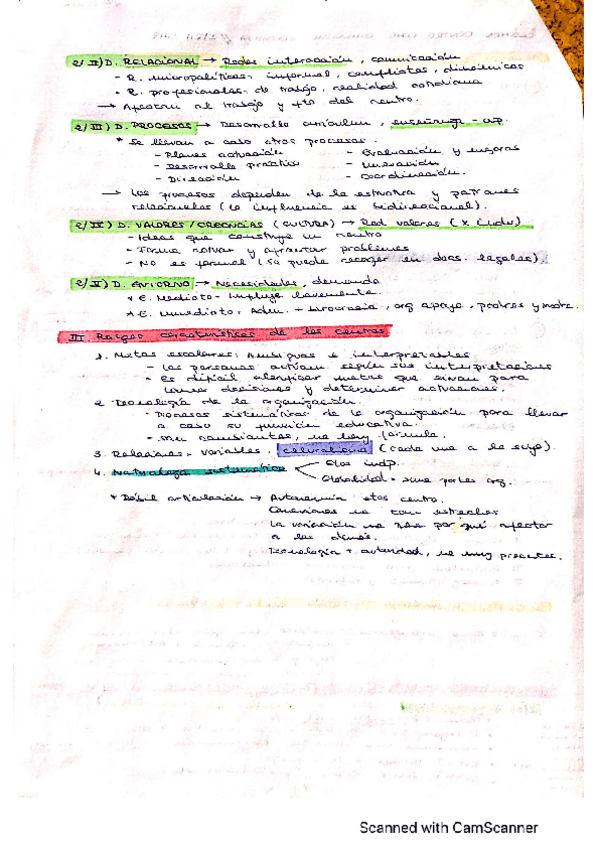 2/ II) D. RELACIONAL → Redes interacción, comunicación
- R. micropolíticas: informal, conflictos, dinámicas
- R. profesionales: de trabajo, realidad cotidiana
→ Afectan al trabajo y fto del centro.
2/ III) D. PROCESOS → Desarrollo curriculum, enseñanza-ap.
* Se llevan a cabo otros procesos.
- Planes actuación - Evaluación y mejoras
- Desarrollo práctico - Innovación
- Dirección - Coordinación.
→ Los procesos dependen de la estructura y patrones
relacionales (la influencia es bidireccional).
D. VALORES/CREENCIAS (CULTURA) → Red valores
- Ideas que construye un centro
- Forma actuar y afrontar problemas
- No es formal (se puede recoger en docs. legales).
D. ENTORNO → Necesidades, demanda
* E. Mediato - Influye levemente
* E. inmediato: Adm. + burocracia, org apoyo, padres y madre.
III Rasgos característicos de los centros
1. Metas escolares: Ambiguas e interpretables
- Las personas actúan según sus interpretaciones
- Es difícil identificar metas que sirvan para
tomar decisiones y determinar actuaciones.
2. Tecnología de la organización.
- Procesos sistemáticos de la organización para llevar
a cabo su función educativa.
- Son cambiantes, no hay fórmula.
3. Relaciones: variables, (cada uno a lo suyo).
4. Naturaleza sistemática
indep.
Globalidad - une partes org.
* Débil articulación → Autonomía centro.
Conexiones no tan estrechas
La variación no tiene por qué afectar
a los demás.
Tecnología + autoridad, no muy presentes.
Scanned with CamScanner